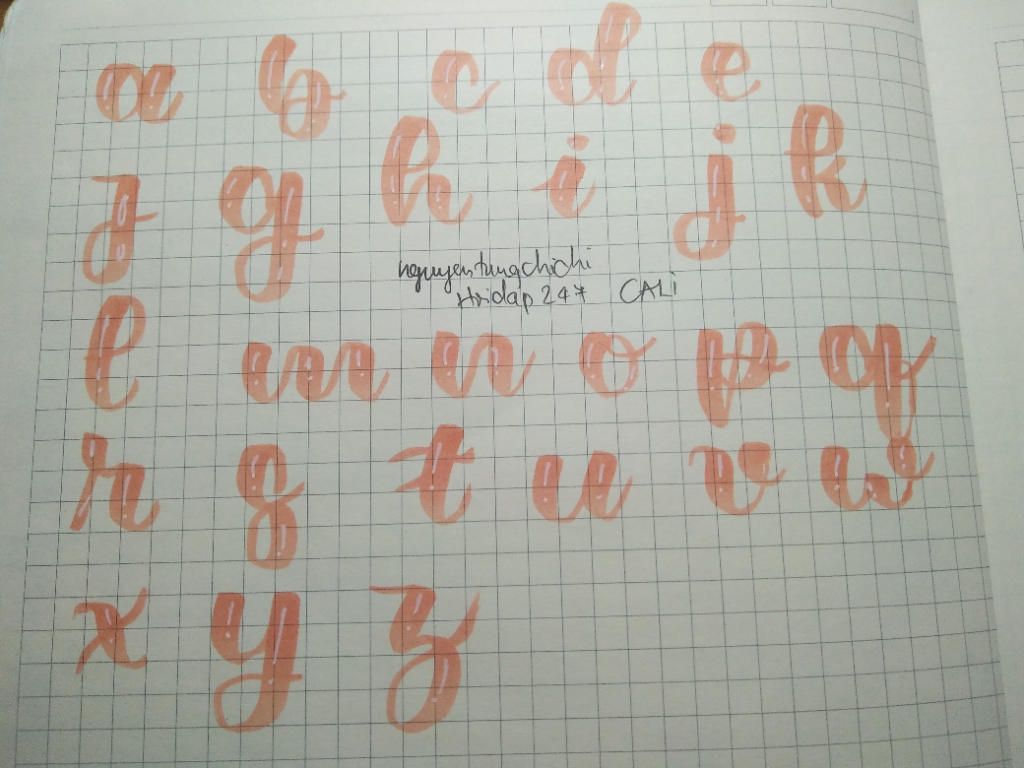 a b c d e
f g h i j k
nguyentungchichi
Hoidap 247 CALi
l m n o p q
r s t u v w
x y z